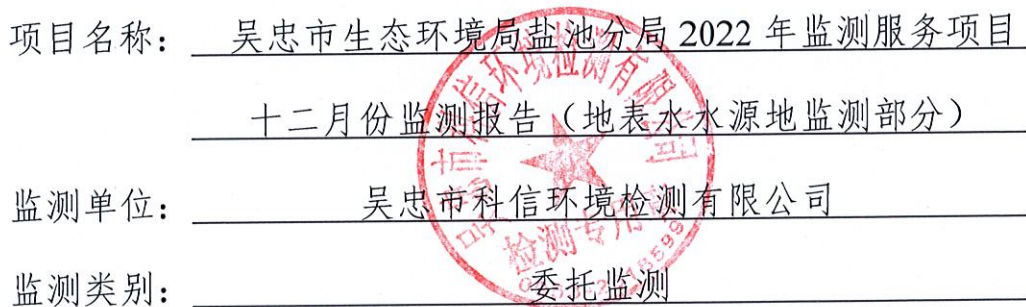 项目名称： 吴忠市生态环境局盐池分局 2022 年监测服务项目
十二月份监测报告（地表水水源地监测部分）
监测单位： 吴忠市科信环境检测有限公司
监测类别： 委托监测
吴忠市科信环境检测有限公司